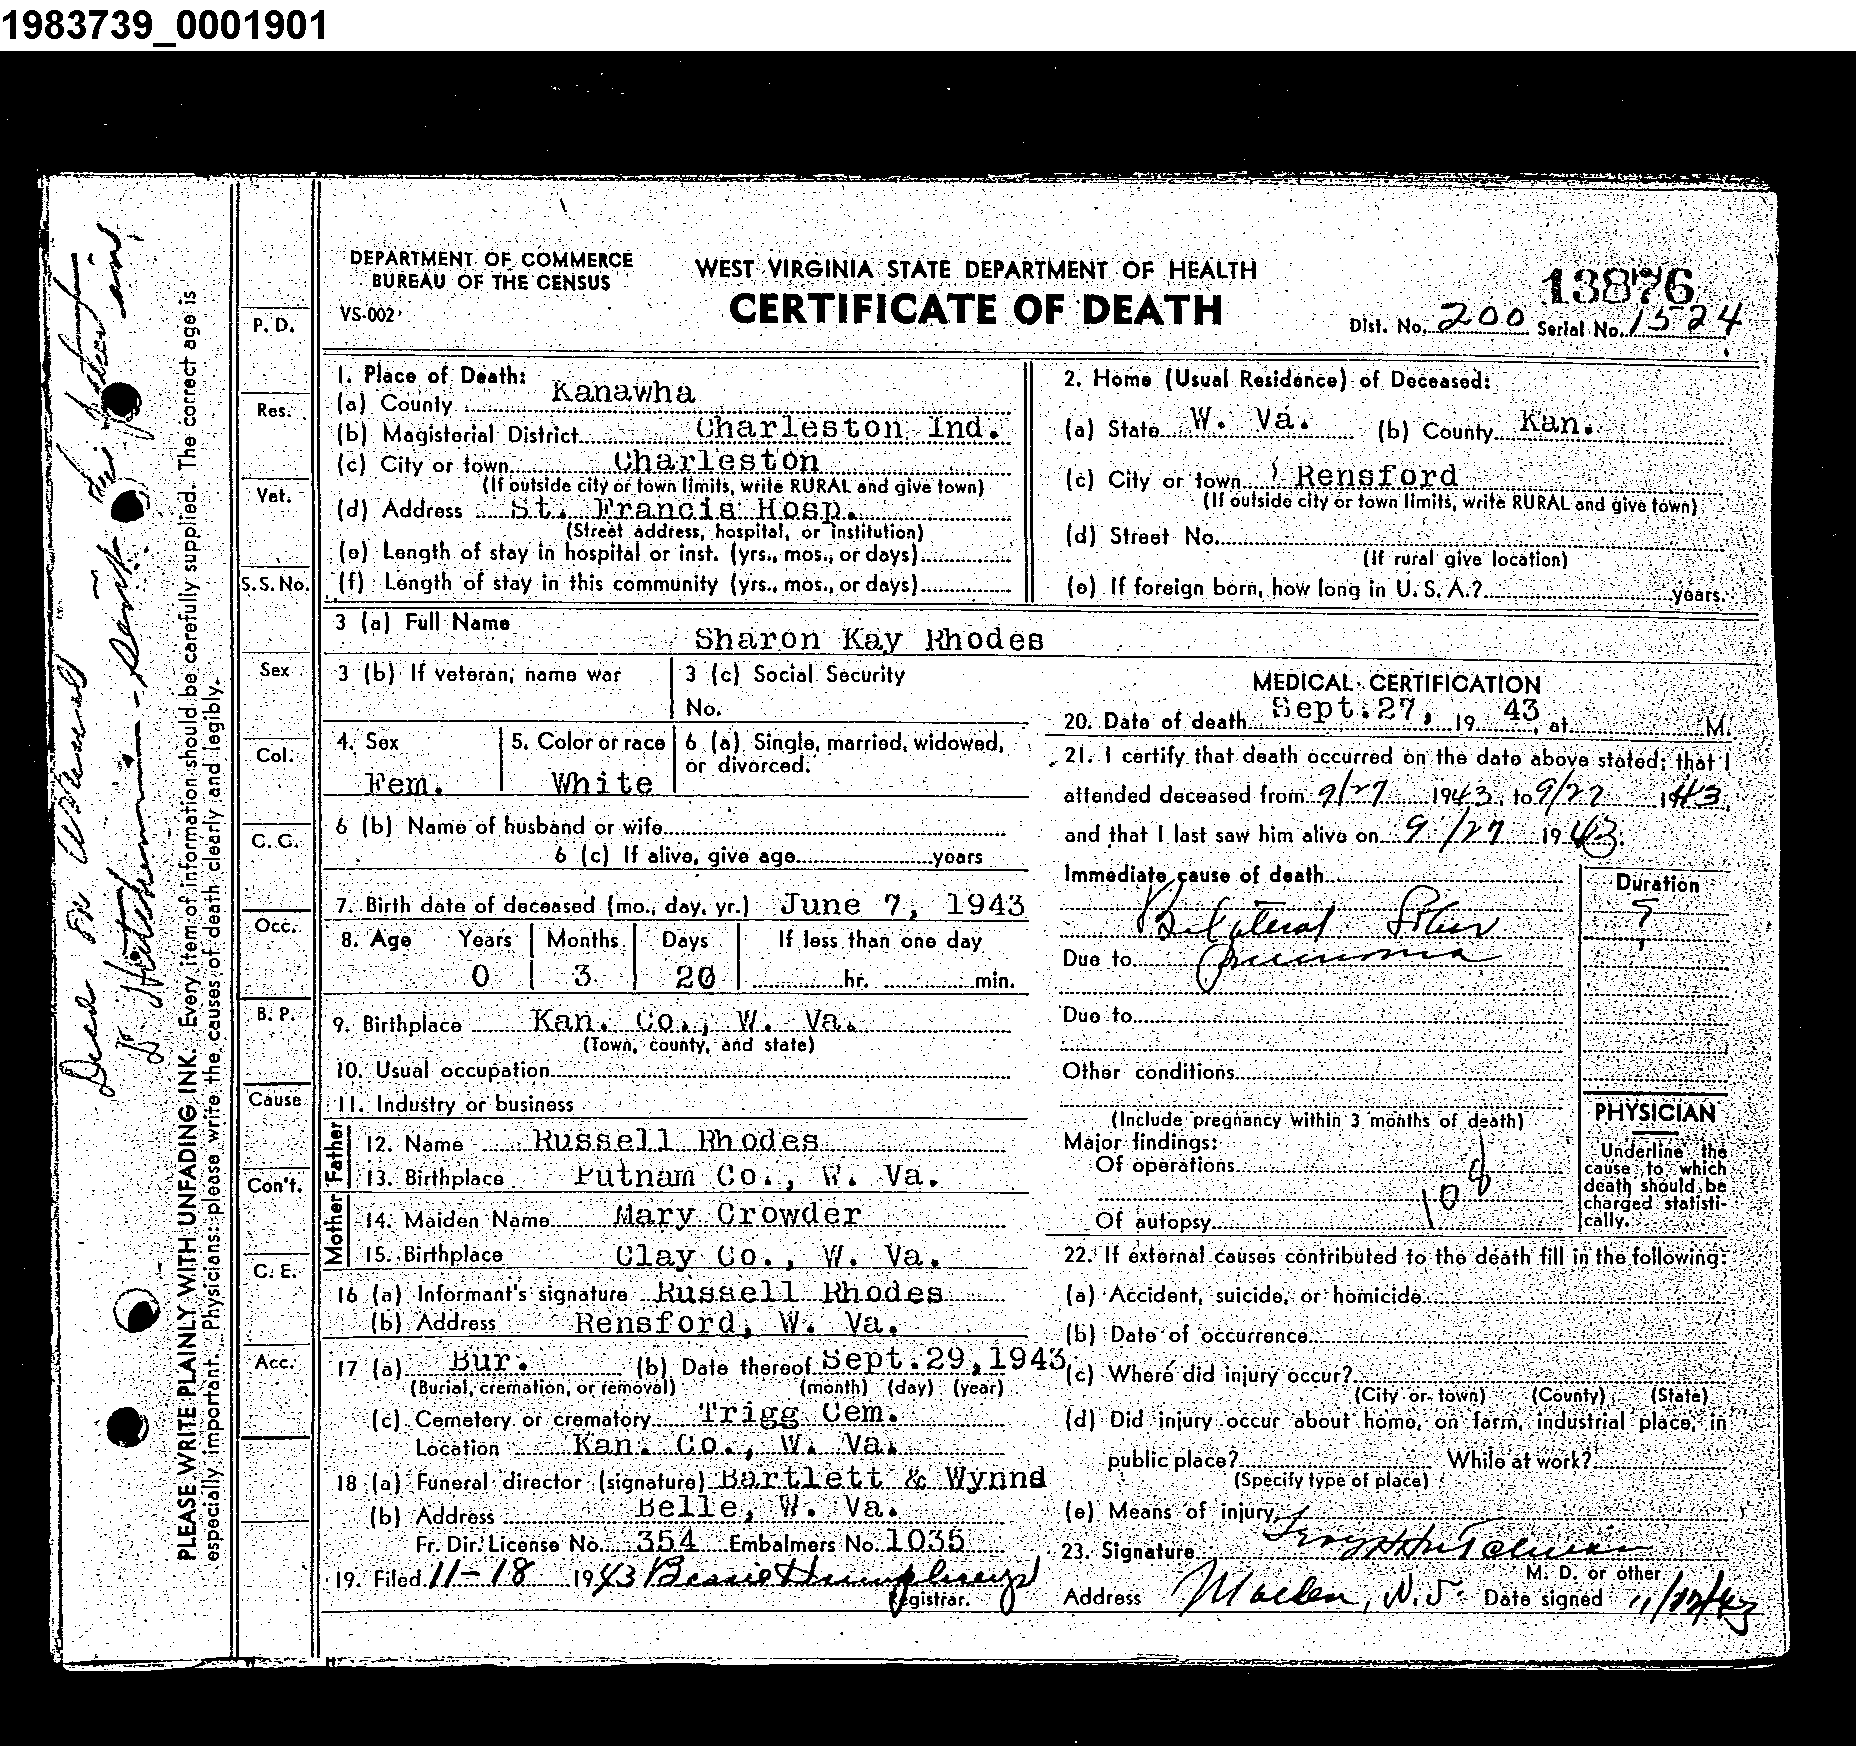 1983739_0001901
DEPARTMENT OF COMMERCE
BUREAU OF THE CENSUS
VS-002
WEST VIRGINIA STATE DEPARTMENT OF HEALTH
CERTIFICATE OF DEATH
13876
Dist. No. 200 Serial No. 1524
1. Place of Death:
(a) County Kanawha
(b) Magisterial District Charleston Ind.
(c) City or town Charleston
(If outside city or town limits, write RURAL and give town)
(d) Address St. Francis Hosp.
(Street address, hospital, or institution)
(e) Length of stay in hospital or inst. (yrs., mos., or days)
(f) Length of stay in this community (yrs., mos., or days)
2. Home (Usual Residence) of Deceased:
(a) State W. Va. (b) County Kan.
(c) City or town Rensford
(If outside city or town limits, write RURAL and give town)
(d) Street No.
(If rural give location)
(e) If foreign born, how long in U. S. A.? years.
3 (a) Full Name Sharon Kay Rhodes
3 (b) If veteran, name war
3 (c) Social Security
No.
4. Sex Fem.
5. Color or race White
6 (a) Single, married, widowed,
or divorced.
6 (b) Name of husband or wife
6 (c) If alive, give age years
7. Birth date of deceased (mo., day, yr.) June 7, 1943
8. Age Years Months Days If less than one day
0 3 20 hr. min.
9. Birthplace Kan. Co., W. Va.
(Town, county, and state)
10. Usual occupation
11. Industry or business
Father
12. Name Russell Rhodes
13. Birthplace Putnam Co., W. Va.
Mother
14. Maiden Name Mary Crowder
15. Birthplace Clay Co., W. Va.
16 (a) Informant's signature Russell Rhodes
(b) Address Rensford, W. Va.
17 (a) Bur. (b) Date thereof Sept. 29, 1943
(Burial, cremation, or removal) (month) (day) (year)
(c) Cemetery or crematory Trigg Cem.
Location Kan. Co., W. Va.
18 (a) Funeral director (signature) Bartlett & Wynnd
(b) Address Belle, W. Va.
Fr. Dir. License No. 354 Embalmers No. 1035
19. Filed 11-18 1943 Bessie Humphreys
Registrar.
MEDICAL CERTIFICATION
20. Date of death Sept. 27, 19 43, at M.
21. I certify that death occurred on the date above stated; that I
attended deceased from 9/27 1943, to 9/27 1943,
and that I last saw him alive on 9/27 1943.
Immediate cause of death
Bilateral
Due to Pneumonia
Due to
Other conditions
(Include pregnancy within 3 months of death)
Major findings:
Of operations
Of autopsy
108
Duration
?
PHYSICIAN
Underline the
cause to which
death should be
charged statisti-
cally.
22. If external causes contributed to the death fill in the following:
(a) Accident, suicide, or homicide
(b) Date of occurrence
(c) Where did injury occur?
(City or town) (County) (State)
(d) Did injury occur about home, on farm, industrial place, in
public place? While at work?
(Specify type of place)
(e) Means of injury
23. Signature Hutchinson
M. D. or other
Address Malden, Date signed 11/17/43
P. D.
Res.
Vet.
S. S. No.
Sex
Col.
C. C.
Occ.
B. P.
Cause
Con't.
C. E.
Acc.
PLEASE WRITE PLAINLY WITH UNFADING INK. Every item of information should be carefully supplied. The correct age is
especially important. Physicians: please write the causes of death clearly and legibly.
Dr. Hutchinson